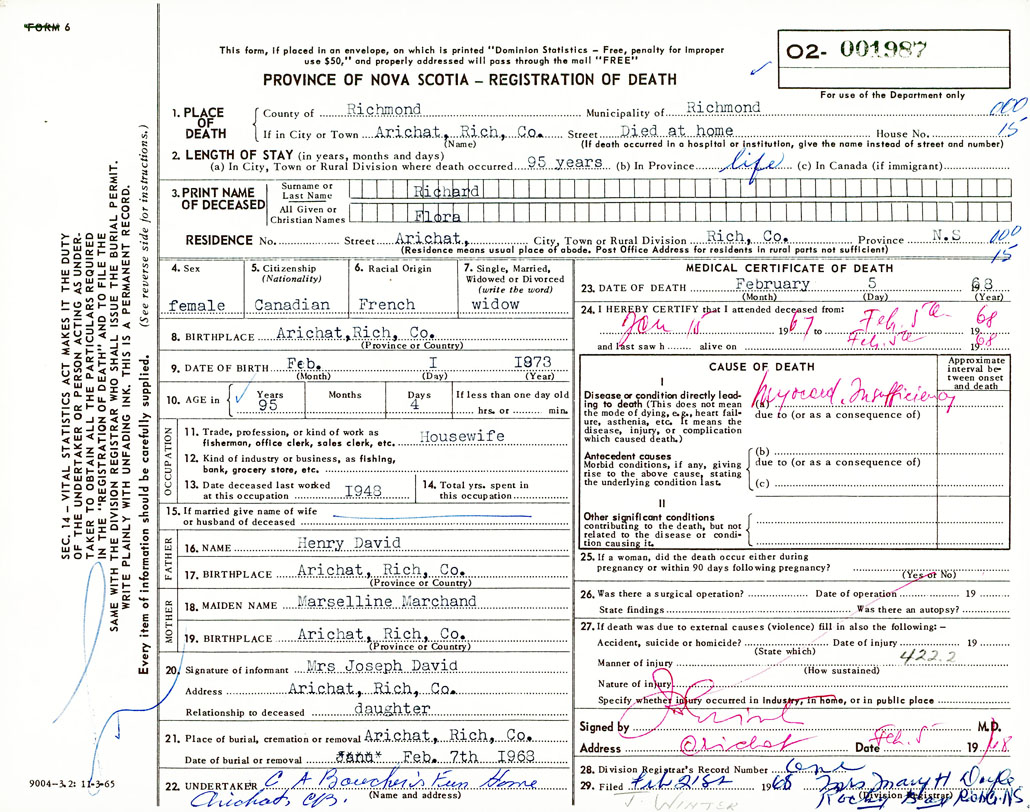 FORM 6
This form, if placed in an envelope, on which is printed "Dominion Statistics – Free, penalty for improper
use $50," and properly addressed will pass through the mail "FREE"
PROVINCE OF NOVA SCOTIA – REGISTRATION OF DEATH
02- 001987
For use of the Department only
1. PLACE OF DEATH
County of Richmond Municipality of Richmond 000
If in City or Town Arichat, Rich, Co. Street Died at home House No. 15
(Name) (If death occurred in a hospital or institution, give the name instead of street and number)
2. LENGTH OF STAY (in years, months and days)
(a) In City, Town or Rural Division where death occurred 95 years (b) In Province life (c) In Canada (if immigrant)
3. PRINT NAME OF DECEASED
Surname or Last Name Richard
All Given or Christian Names Flora
RESIDENCE No. Street Arichat, City, Town or Rural Division Rich, Co. Province N.S 100
(Residence means usual place of abode. Post Office Address for residents in rural parts not sufficient) 15
4. Sex
female
5. Citizenship
(Nationality)
Canadian
6. Racial Origin
French
7. Single, Married,
Widowed or Divorced
(write the word)
widow
8. BIRTHPLACE Arichat,Rich, Co.
(Province or Country)
9. DATE OF BIRTH Feb. I I873
(Month) (Day) (Year)
10. AGE in
Years Months Days If less than one day old
95 4 hrs. or min.
OCCUPATION
11. Trade, profession, or kind of work as
fisherman, office clerk, sales clerk, etc. Housewife
12. Kind of industry or business, as fishing,
bank, grocery store, etc.
13. Date deceased last worked
at this occupation I948
14. Total yrs. spent in
this occupation
15. If married give name of wife
or husband of deceased
FATHER
16. NAME Henry David
17. BIRTHPLACE Arichat, Rich, Co.
(Province or Country)
MOTHER
18. MAIDEN NAME Marselline Marchand
19. BIRTHPLACE Arichat, Rich, Co.
(Province or Country)
20. Signature of informant Mrs Joseph David
Address Arichat, Rich, Co.
Relationship to deceased daughter
21. Place of burial, cremation or removal Arichat, Rich, Co.
Date of burial or removal Feb. 7th I968
22. UNDERTAKER C A Boucher's Fun Home
(Name and address)
Arichat, C.B.
MEDICAL CERTIFICATE OF DEATH
23. DATE OF DEATH February 5 68
(Month) (Day) (Year)
24. I HEREBY CERTIFY that I attended deceased from:
Jan 15 1967 to Feb. 5th 1968
and last saw h alive on Feb. 5th 1968
CAUSE OF DEATH
Approximate
interval be-
tween onset
and death
I
Disease or condition directly lead-
ing to death (This does not mean
the mode of dying, e.g., heart fail-
ure, asthenia, etc. It means the
disease, injury, or complication
which caused death.)
(a) Myocard. Insufficiency
due to (or as a consequence of)
Antecedent causes
Morbid conditions, if any, giving
rise to the above cause, stating
the underlying condition last.
(b)
due to (or as a consequence of)
(c)
II
Other significant conditions
contributing to the death, but not
related to the disease or condi-
tion causing it.
25. If a woman, did the death occur either during
pregnancy or within 90 days following pregnancy?
(Yes or No)
26. Was there a surgical operation? Date of operation 19
State findings Was there an autopsy?
27. If death was due to external causes (violence) fill in also the following: –
Accident, suicide or homicide? Date of injury 19
(State which) 422.2
Manner of injury
(How sustained)
Nature of injury
Specify whether injury occurred in Industry, in home, or in public place
Signed by M.D.
Address Arichat Date Feb. 5 1968
28. Division Registrar's Record Number one
29. Filed Feb 21st 1968 Mrs Mary H Doyle
(Division Registrar)
J. WINTER
SEC. 14 – VITAL STATISTICS ACT MAKES IT THE DUTY
OF THE UNDERTAKER OR PERSON ACTING AS UNDER-
TAKER TO OBTAIN ALL THE PARTICULARS REQUIRED
IN THE "REGISTRATION OF DEATH" AND TO FILE THE
SAME WITH THE DIVISION REGISTRAR WHO SHALL ISSUE THE BURIAL PERMIT.
WRITE PLAINLY WITH UNFADING INK. THIS IS A PERMANENT RECORD.
Every item of information should be carefully supplied. (See reverse side for instructions.)
9004-3.2: 11-3-65